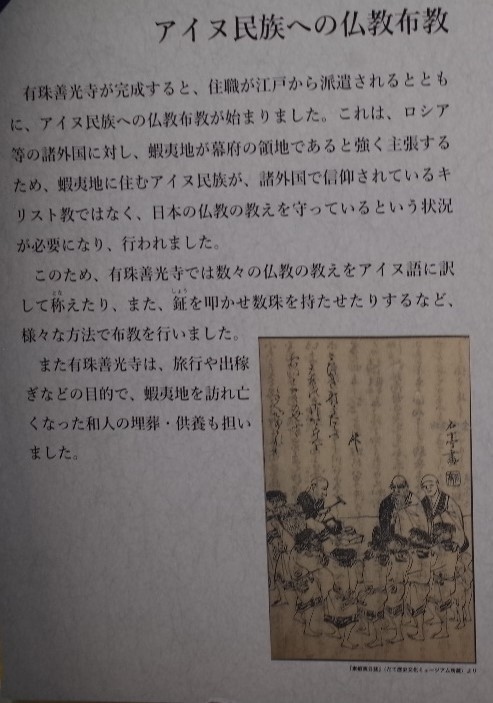 アイヌ民族への仏教布教
有珠善光寺が完成すると、住職が江戸から派遣されるととも
に、アイヌ民族への仏教布教が始まりました。これは、ロシア
等の諸外国に対し、蝦夷地が幕府の領地であると強く主張する
ため、蝦夷地に住むアイヌ民族が、諸外国で信仰されているキ
リスト教ではなく、日本の仏教の教えを守っているという状況
が必要になり、行われました。
このため、有珠善光寺では数々の仏教の教えをアイヌ語に訳
して称えたり、また、鉦を叩かせ数珠を持たせたりするなど、
様々な方法で布教を行いました。
また有珠善光寺は、旅行や出稼
ぎなどの目的で、蝦夷地を訪れ亡
くなった和人の埋葬・供養も担い
ました。